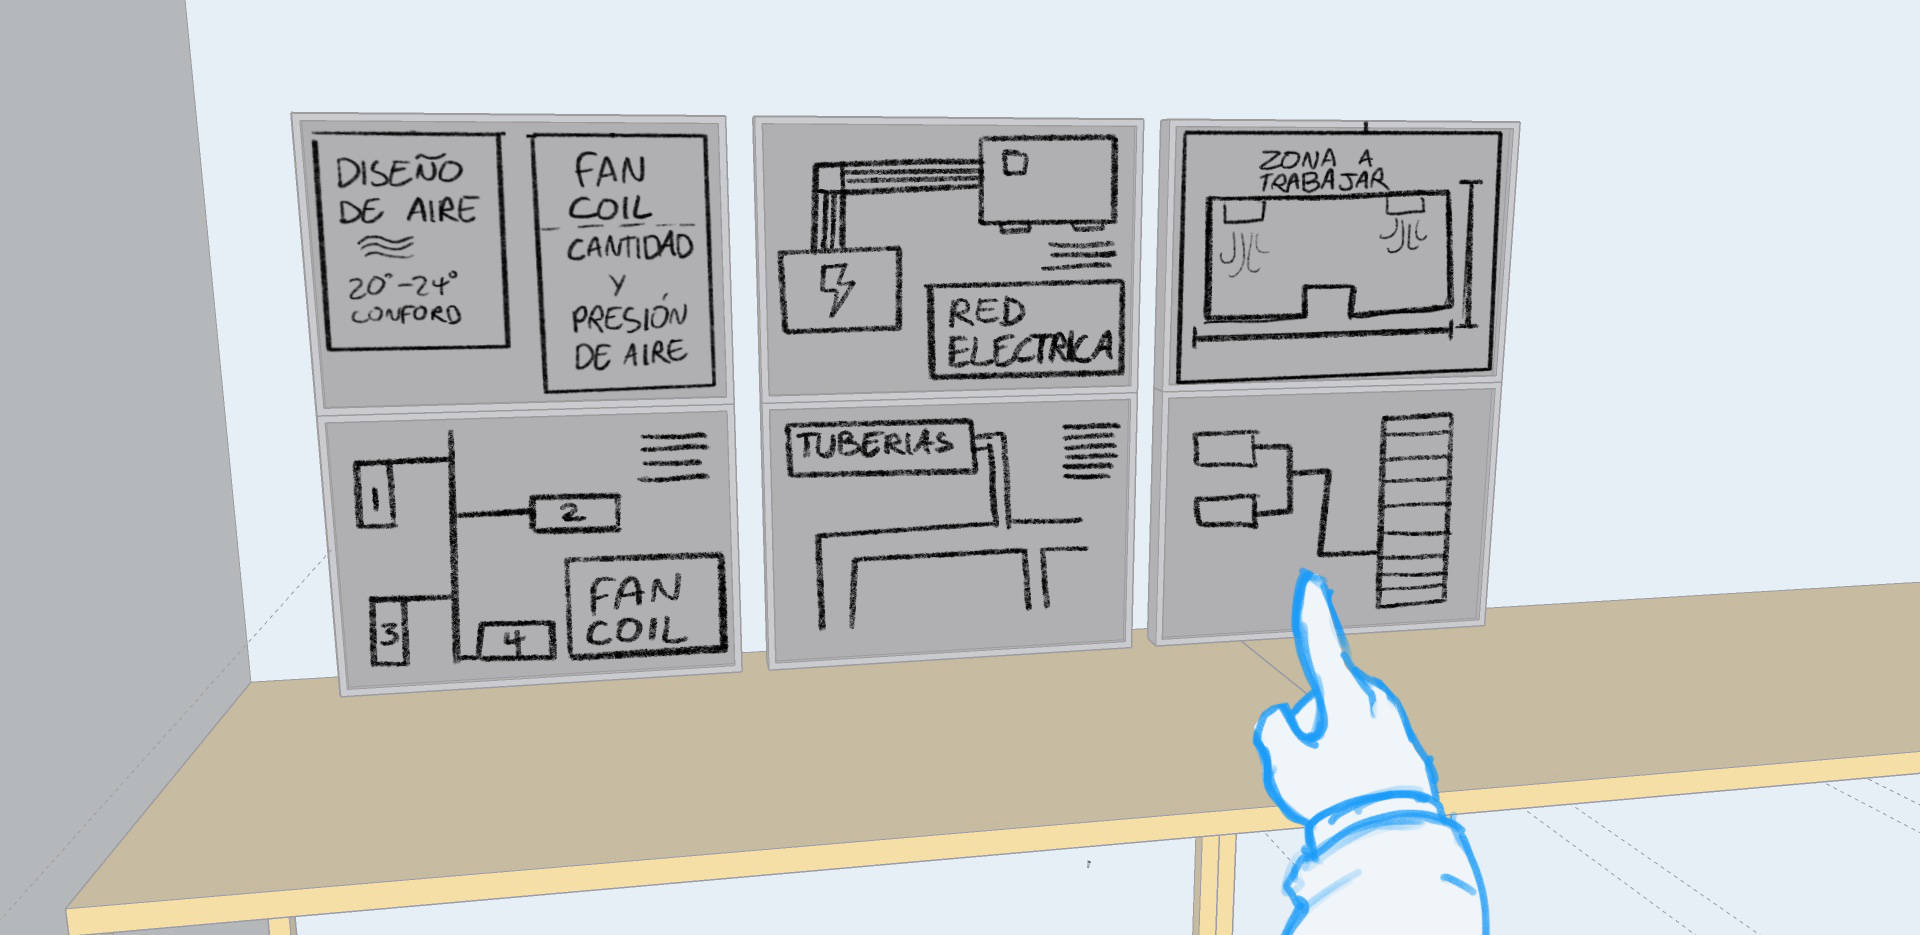 DISEÑO
DE AIRE
20°-24°
CONFORD
FAN
COIL
CANTIDAD
Y
PRESIÓN
DE AIRE
RED
ELECTRICA
ZONA A
TRABAJAR
1
2
3
4
FAN
COIL
TUBERIAS